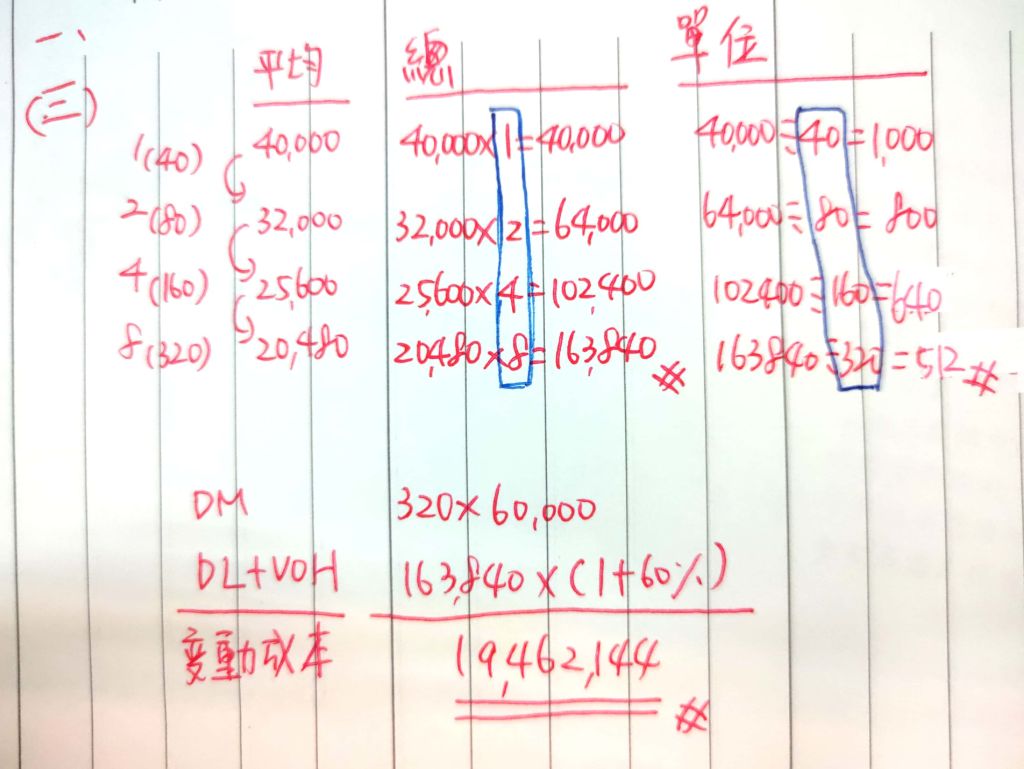 一、
(三)
平均 總 單位
1(40) 40,000 40,000×1=40,000 40,000÷40=1,000
2(80) 32,000 32,000×2=64,000 64,000÷80=800
4(160) 25,600 25,600×4=102,400 102400÷160=640
8(320) 20,480 20,480×8=163,840 # 163840÷320=512 #
DM 320×60,000
DL+VOH 163,840×(1+60%)
変動成本 19,462,144 #